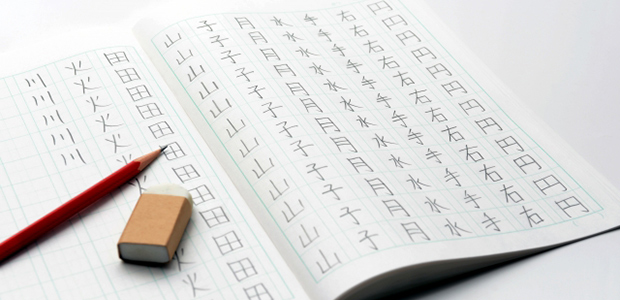 円円円円円円円円円円円円
右右右右右右右右右右右右
手手手手手手手手手手手手
水水水水水水水水水水水水
月月月月月月月月月月月月
子子子子子子子子子子子子
山山山山山山山山山山山山
田田田田田田田田田田田田
火火火火火火火火火
川川川川川